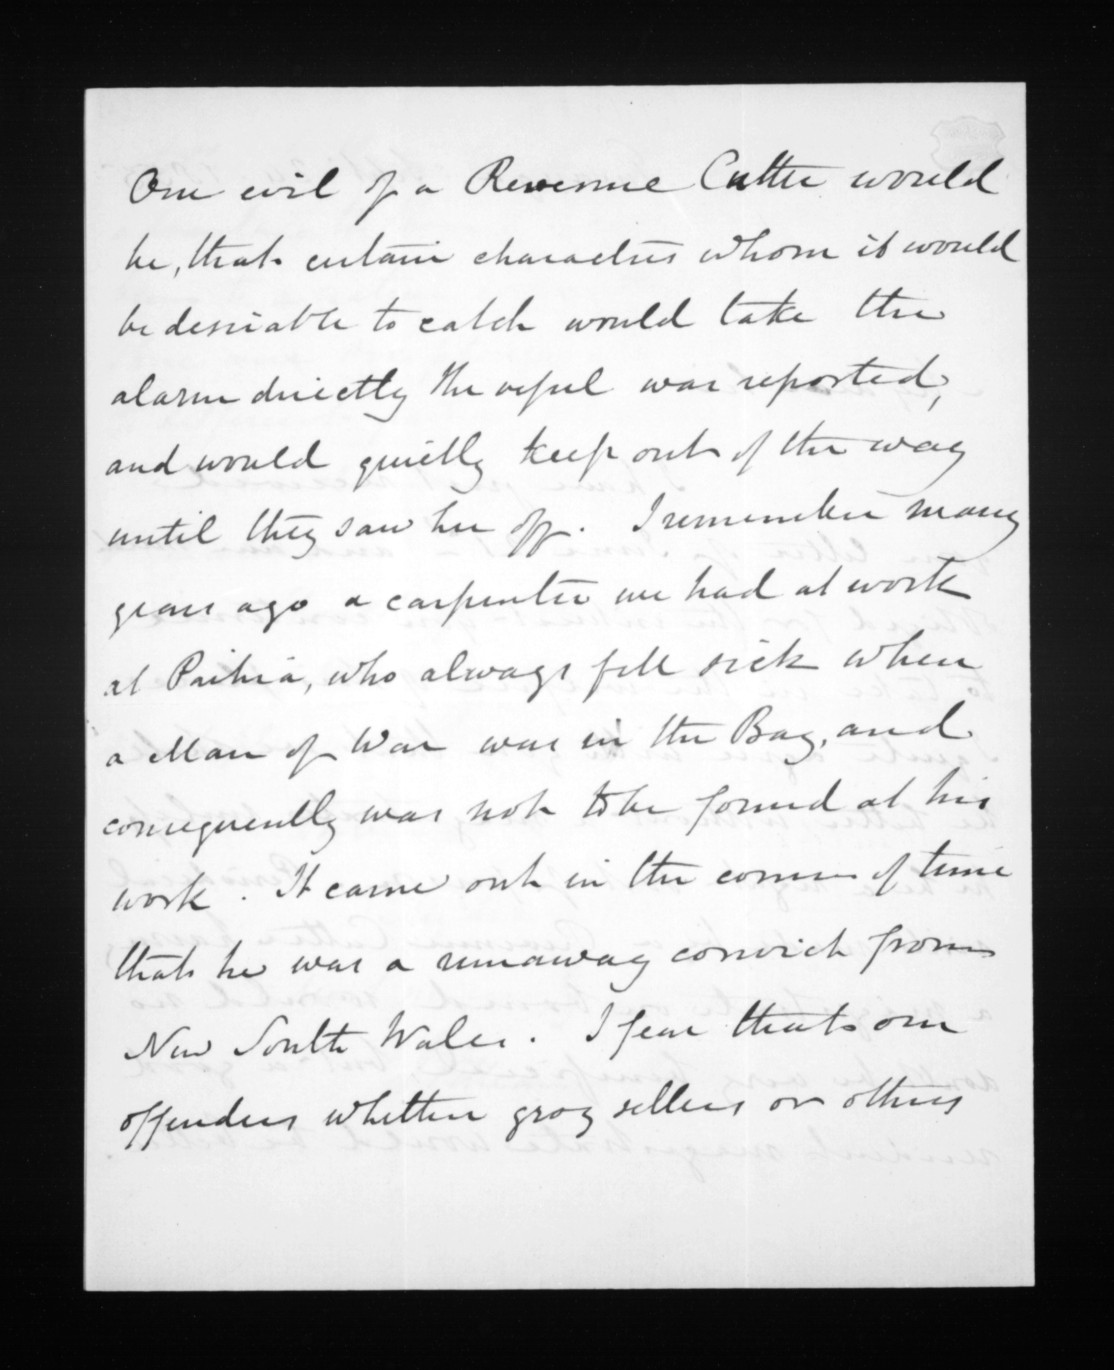 One evil of a Revenue Cutter would
be, that certain characters whom it would
be desirable to catch would take the
alarm directly the vessel was reported,
and would quietly keep out of the way
until they saw her off. I remember many
years ago a carpenter we had at work
at Paihia, who always fell sick when
a Man of War was in the Bay, and
consequently was not to be found at his
work. It came out in the course of time
that he was a runaway convict from
New South Wales. I fear that our
offenders whether grog sellers or others